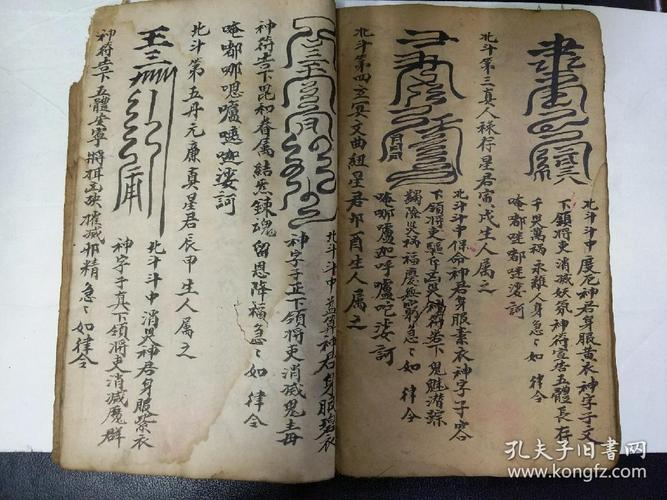 北斗斗中度厄神君身服黄衣神字子文
下領將吏消滅妖氛神符宣告五體長存
千災萬禍永離人身急々如律令
唵嘟𠱀嘟𠱀娑訶
北斗第三真人祿存星君寅戌生人属之
北斗斗中保命神君身服素衣神字子容
下領將吏驅斥
神符吉下鬼魅潛踪
蠲除災禍福慶無窮急々如律令
唵
娑訶
北斗第四玄冥文曲紐星君卯酉生人属之
北斗斗中益算神君身服碧衣
神字子正下領將吏消滅鬼土毒
神符吉下昆和眷属結炁鍊魂留恩降福急々如律令
唵嘟
娑訶
北斗第五丹元廉貞星君辰申生人属之
北斗斗中消災神君身服紫衣
神字子真下領將吏消滅魔群
神符吉下五體安寧將
摧滅邪精急々如律令
孔夫子旧书网
www.kongfz.com